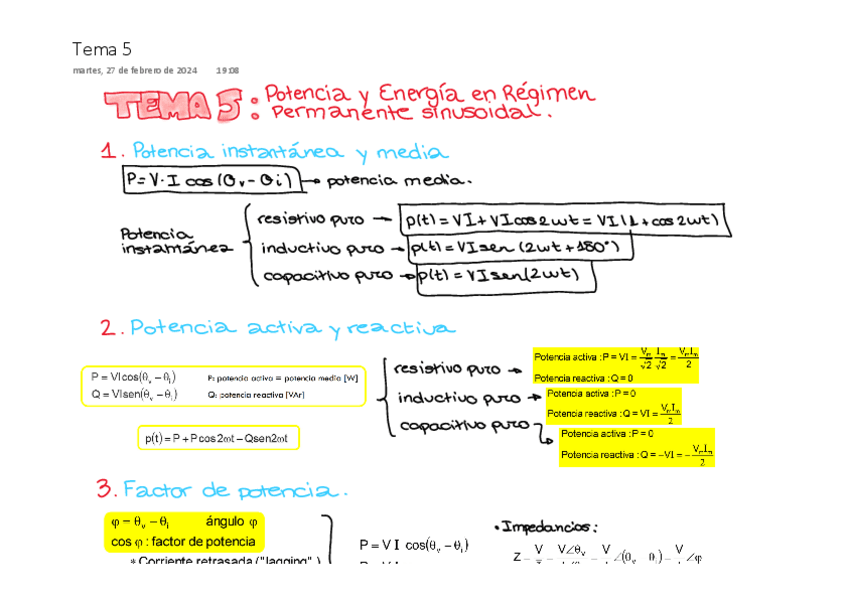 Tema 5
martes, 27 de febrero de 2024 19:08
TEMA 5: Potencia y Energía en Régimen
Permanente sinusoidal.
1. Potencia instantánea y media
P = V · I cos(θv - θi) → potencia media.
Potencia instantánea
resistivo puro → p(t) = VI + VI cos 2wt = VI (1 + cos 2wt)
inductivo puro → p(t) = VI sen (2wt + 180°)
capacitivo puro → p(t) = VI sen (2wt)
2. Potencia activa y reactiva
P = VI cos(θv − θi) P: potencia activa = potencia media [W]
Q = VI sen(θv − θi) Q: potencia reactiva [VAr]
p(t) = P + P cos 2ωt − Q sen 2ωt
resistivo puro → Potencia activa : P = VI = Vm/√2 Im/√2 = VmIm/2
Potencia reactiva : Q = 0
inductivo puro → Potencia activa : P = 0
Potencia reactiva : Q = VI = VmIm/2
capacitivo puro → Potencia activa : P = 0
Potencia reactiva : Q = −VI = − VmIm/2
3. Factor de potencia.
φ = θv − θi ángulo φ
cos φ : factor de potencia
* Corriente retrasada ("lagging" )
P = V I cos(θv − θi)
• Impedancias:
Z = V = V∠θv = V ∠(θv θi) = V ∠φ